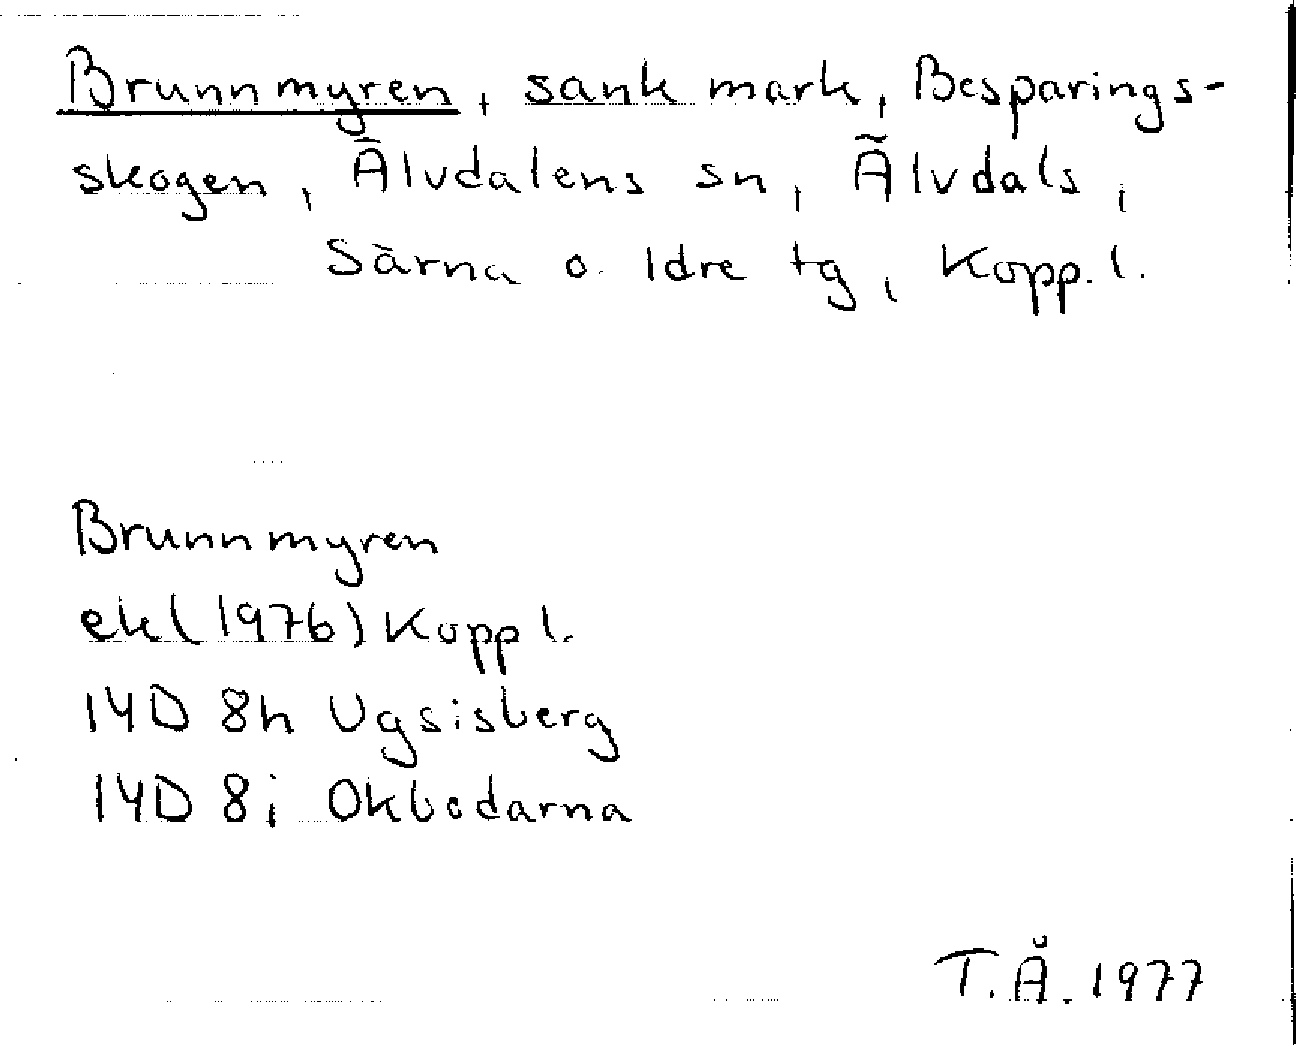 Brunnmyren, sank mark, Besparings-
skogen, Älvdalens sn, Älvdals,
Särna o. Idre tg, Kopp. l.
Brunnmyren
ek (1976) Kopp l.
14D 8h Ugsisberg
14D 8i Okbodarna
T.Å. 1977